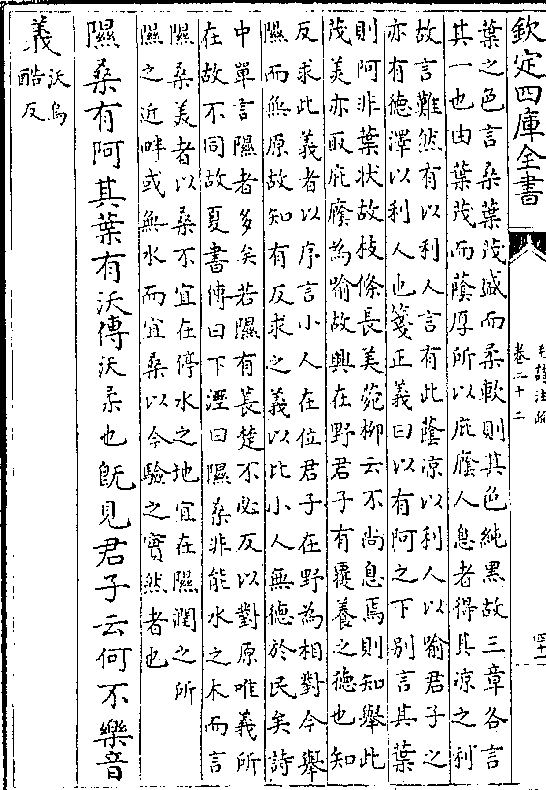 欽定四庫全書
毛詩注疏
卷二十二
四十一
葉之色言桑葉茂盛而柔軟則其色純黑故三章各言
其一也由葉茂而蔭厚所以庇廕人息者得其凉之利
故言難然有以利人言有此蔭凉以利人以喻君子之
亦有德澤以利人也箋正義曰以有阿之下别言其葉
則阿非葉狀故枝條長美菀柳云不尚息焉則知舉此
茂美亦取庇廕為喻故興在野君子有覆養之德也知
反求此義者以序言小人在位君子在野為相對今舉
隰而無原故知有反求之義以比小人無德於民矣詩
中單言隰者多矣若隰有萇楚不必反以對原唯義所
在故不同故夏書傳曰下溼曰隰桑非能水之木而言
隰桑美者以桑不宜在停水之地宜在隰潤之所
隰之近畔或無水而宜桑以今驗之實然者也
隰桑有阿其葉有沃傳沃柔也既見君子云何不樂音
義沃烏
酷反